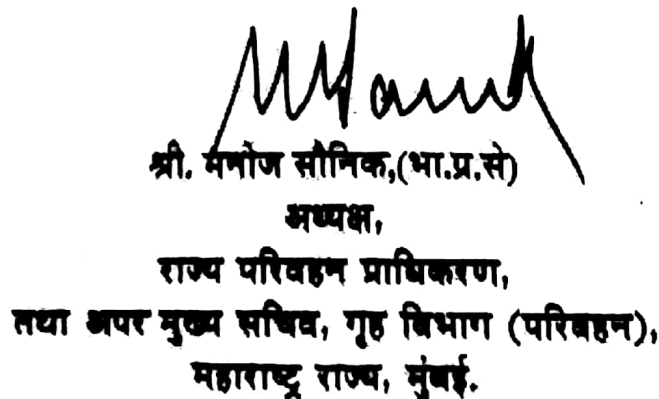 श्री. मनोज सौनिक,(भा.प्र.से)
अध्यक्ष,
राज्य परिवहन प्राधिकरण,
तथा अपर मुख्य सचिव, गृह विभाग (परिवहन),
महाराष्ट्र राज्य, मुंबई.